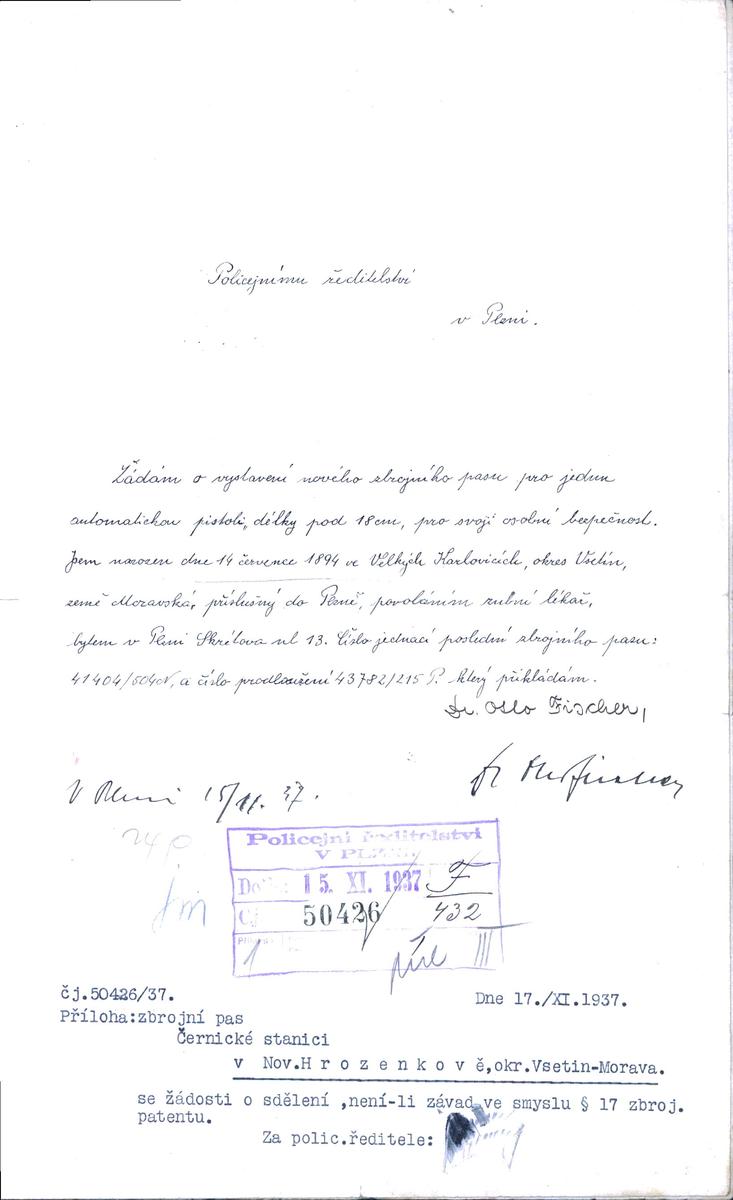 Policejnímu ředitelství
v Plzni.
Žádám o vystavení nového zbrojního pasu pro jednu
automatickou pistoli, délky pod 18cm, pro svoji osobní bezpečnost.
Jsem narozen dne 14 července 1894 ve Velkých Karlovicích, okres Vsetín,
země Moravská, příslušný do Plzně, povoláním zubní lékař,
bytem v Plzni Škrétova ul 13. Číslo jednací poslední zbrojního pasu:
41404/504N, a číslo prodloužení 43782/215 P. který přikládám.
Dr. Otto Fischer,
Dr Otto Fischer
V Plzni 15/11. 37.
Policejní ředitelství
V PLZNI
Došlo: 15. XI. 1937 F
Čj. 50426 432
1 III
čj.50426/37. Dne 17./XI.1937.
Příloha:zbrojní pas
Černické stanici
v Nov.Hrozenkově,okr.Vsetin-Morava.
se žádosti o sdělení ,není-li závad ve smyslu § 17 zbroj.
patentu.
Za polic.ředitele: